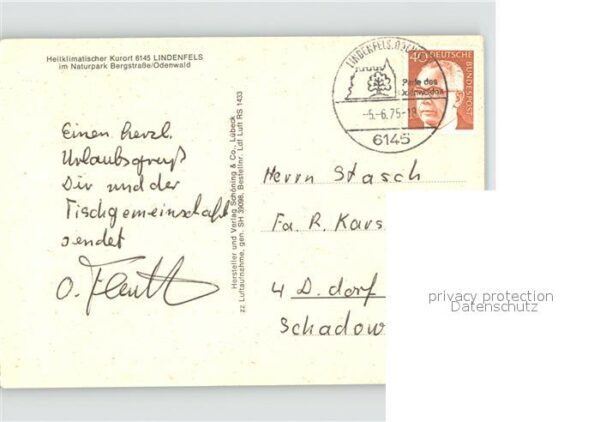 Heilklimatischer Kurort 6145 LINDENFELS
im Naturpark Bergstraße/Odenwald
LINDENFELS, ODENW
Perle des
Odenwaldes
-5.-6.75-18
6145
40
DEUTSCHE
BUNDESPOST
Einen herzl.
Urlaubsgruß
Dir und der
Tischgemeinschaft
sendet
O.
Hersteller und Verlag Schöning & Co., Lübeck
zz Luftaufnahme, gen. SH 39098, Bestellnr. Ldf Luft RS 1433
Herrn Stasch
Fa. R. Kars
4 D.dorf
Schadow
privacy protection
Datenschutz